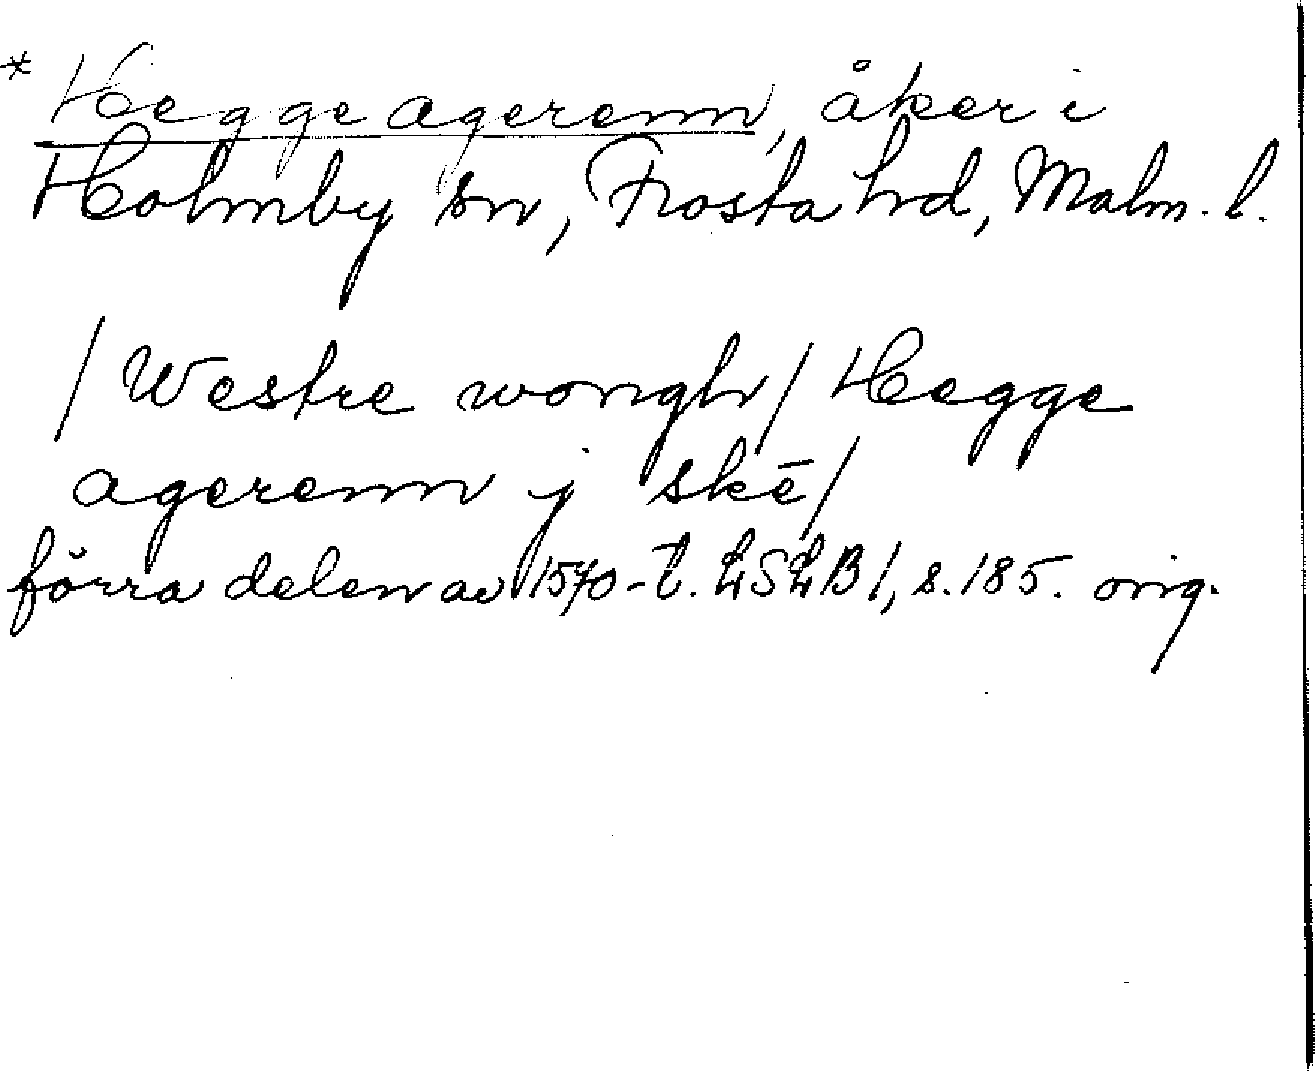 * Hegge agerenn, åker i
Holmby sn, Frosta hd, Malm. l.
/ Westre wongh / Hegge
agerenn j skē /
förra delen av 1570-t. LSLB 1, s. 185. orig.